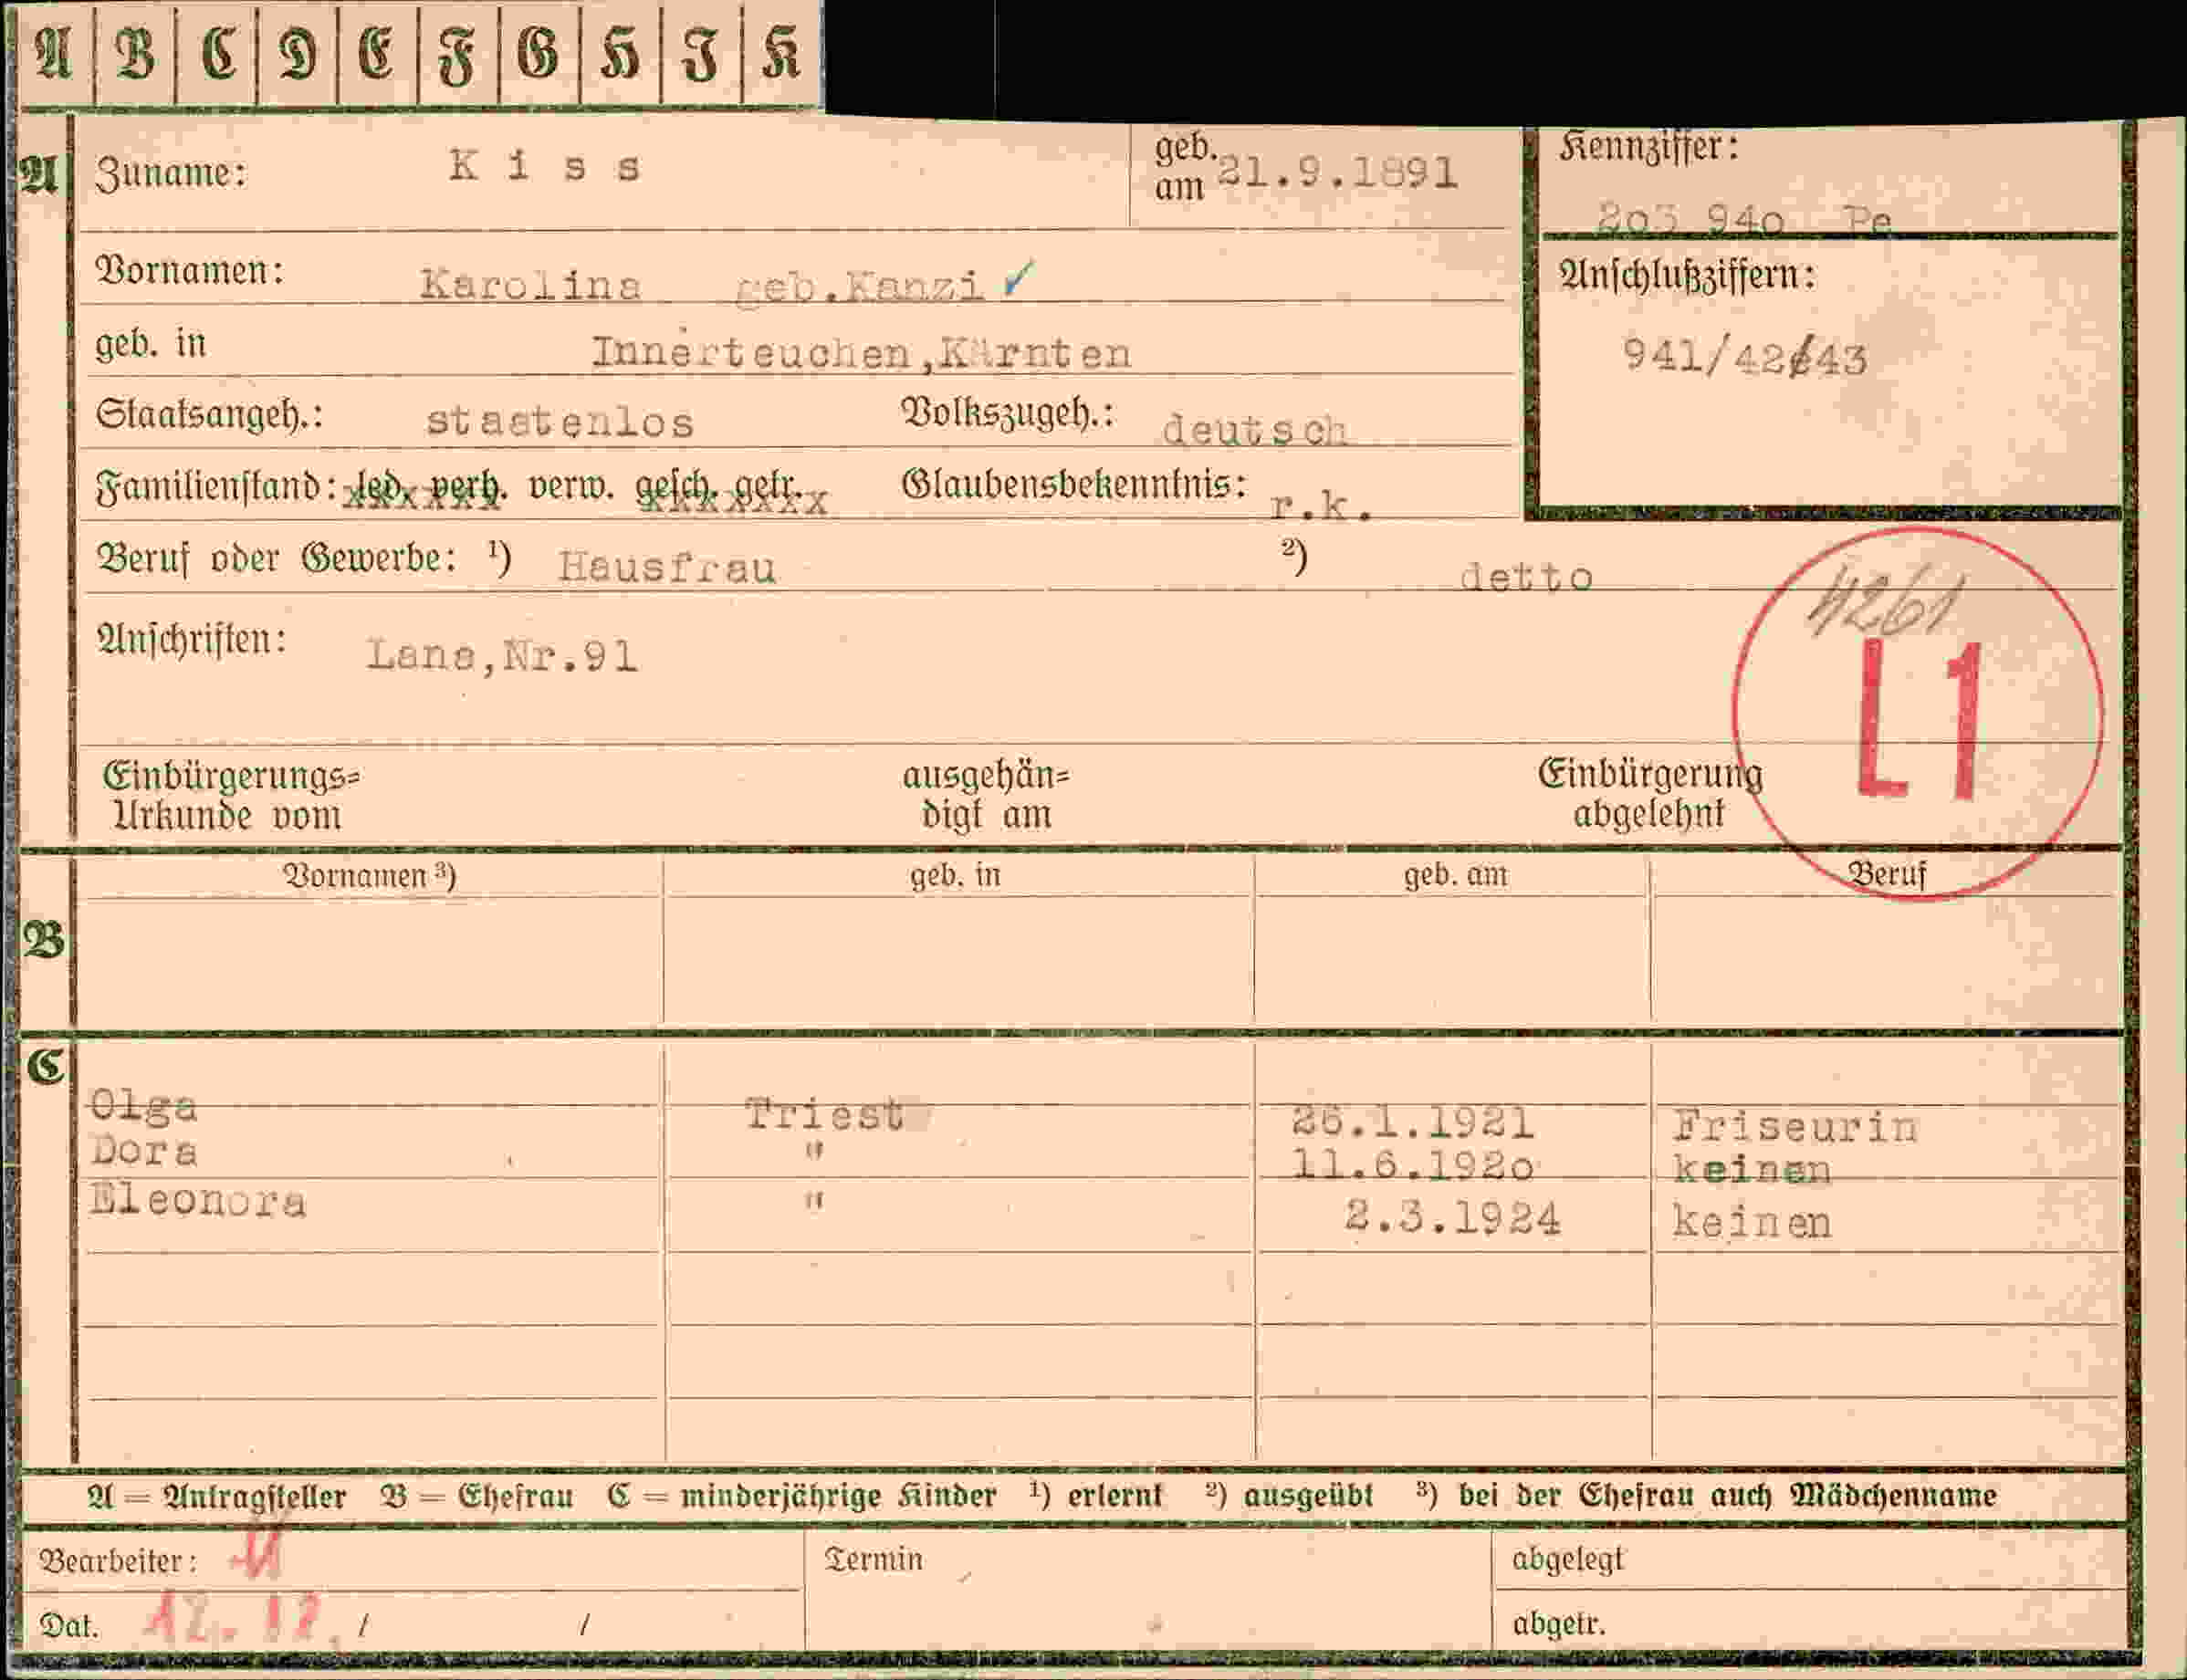 A B C D E F G H I K
A Zuname: Kiss geb. am 21.9.1891 Kennziffer:
2o3 94o Pe
Vornamen: Karolina geb.Kanzi ✓ Anschlußziffern:
geb. in Innerteuchen,Kärnten 941/42/43
Staatsangeh.: staatenlos Volkszugeh.: deutsch
Familienstand: led. verh. verw. gesch. getr. Glaubensbekenntnis: r.k.
Beruf oder Gewerbe: ¹) Hausfrau ²) detto
4261
Anschriften: Lana,Nr.91 L1
Einbürgerungs= ausgehän= Einbürgerung
Urkunde vom digt am abgelehnt
Vornamen ³) geb. in geb. am Beruf
B
C
Olga Triest 26.1.1921 Friseurin
Dora " 11.6.192o keinen
Eleonora " 2.3.1924 keinen
A = Antragsteller B = Ehefrau C = minderjährige Kinder ¹) erlernt ²) ausgeübt ³) bei der Ehefrau auch Mädchenname
Bearbeiter: Termin abgelegt
Dat. 12.12. / / abgetr.